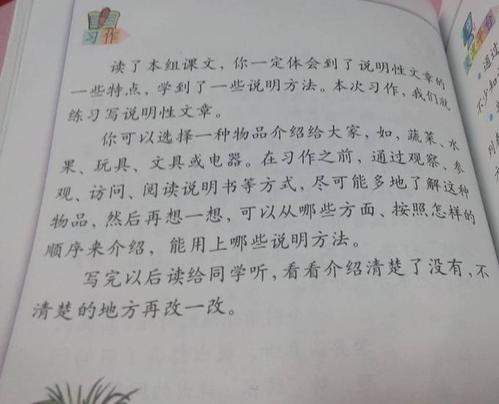 习作
读了本组课文，你一定体会到了说明性文章的
一些特点，学到了一些说明方法。本次习作，我们就
练习写说明性文章。
你可以选择一种物品介绍给大家，如，蔬菜、水
果、玩具、文具或电器。在习作之前，通过观察、参
观、访问、阅读说明书等方式，尽可能多地了解这种
物品，然后再想一想，可以从哪些方面、按照怎样的
顺序来介绍，能用上哪些说明方法。
写完以后读给同学听，看看介绍清楚了没有，不
清楚的地方再改一改。
通过
不少知